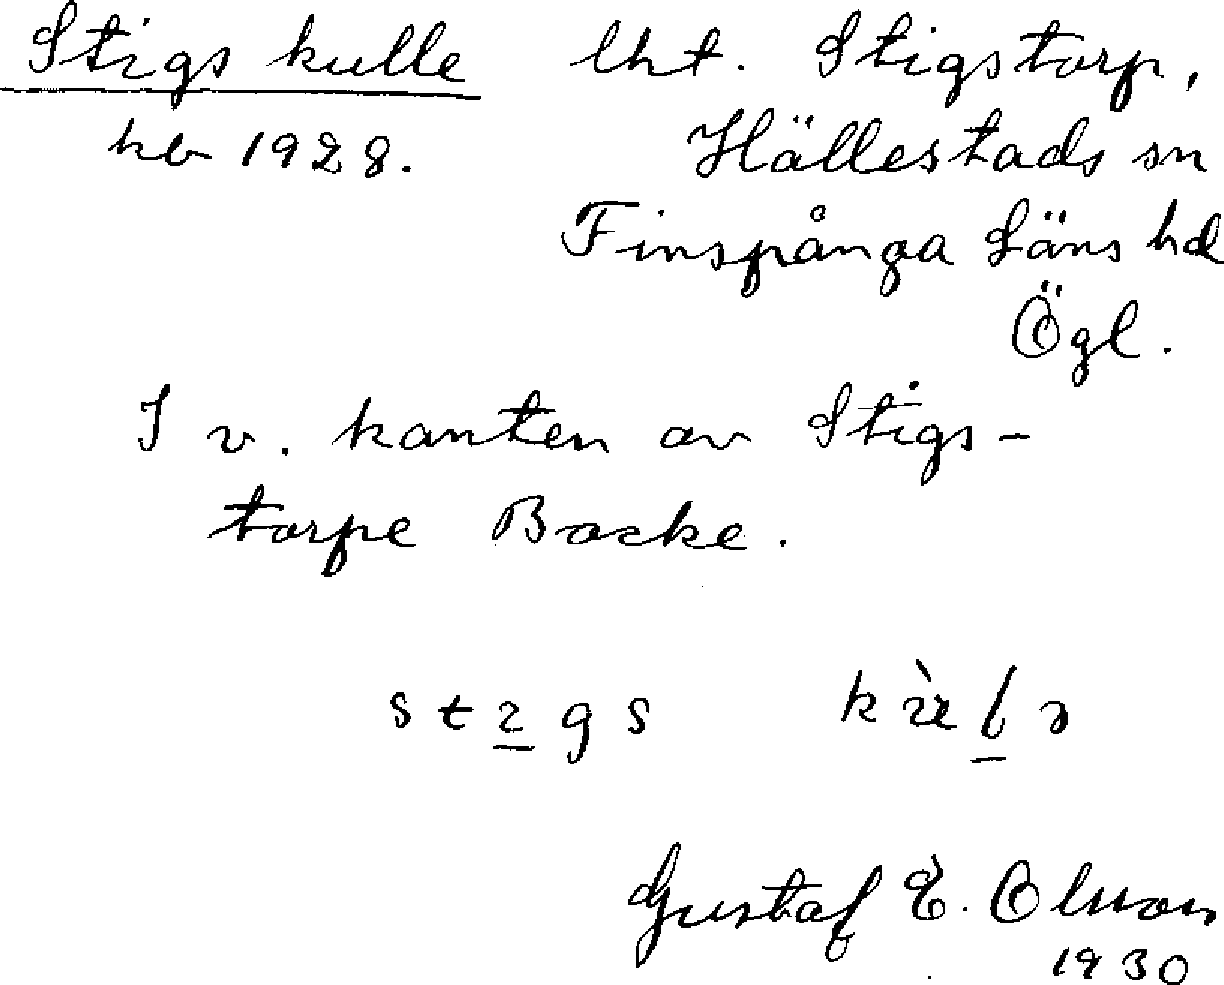 Stigs kulle lht. Stigstorp,
hb 1928. Hällestads sn
Finspånga Läns hd
Ögl.
I v. kanten av Stigs-
torpe Backe.
Gustaf E. Olsson
1930